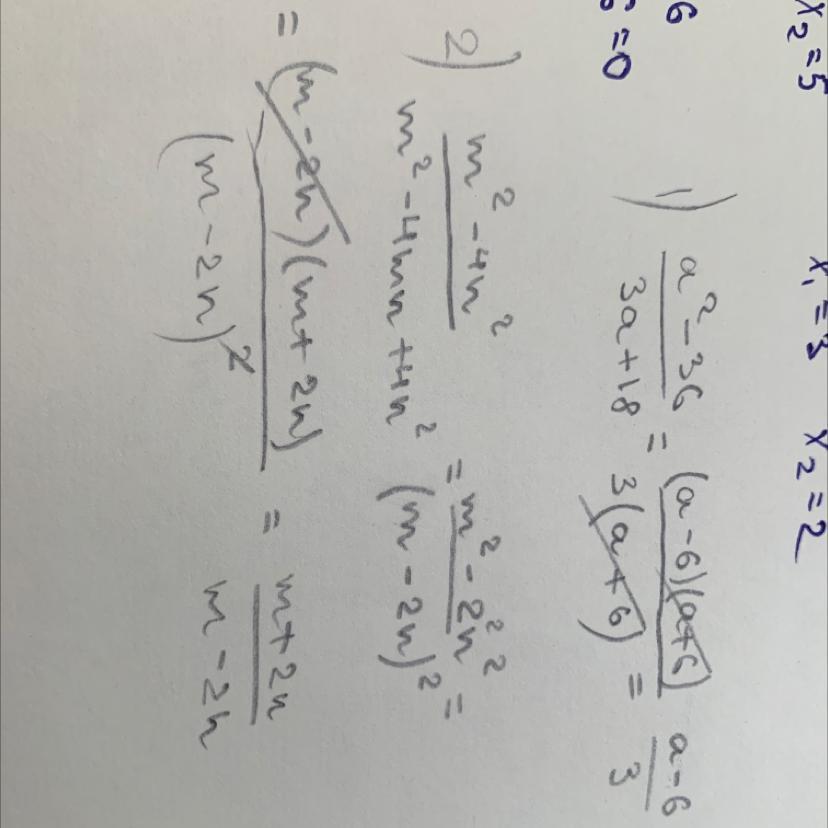 x₂=5
x₁=3 x₂=2
6
6=0
1) (a²-36)/(3a+18) = ((a-6)(a+6))/(3(a+6)) = (a-6)/3
2) (m²-4n²)/(m²-4mn+4n²) = (m²-2²n²)/(m-2n)² =
= ((m-2n)(m+2n))/(m-2n)² = (m+2n)/(m-2n)